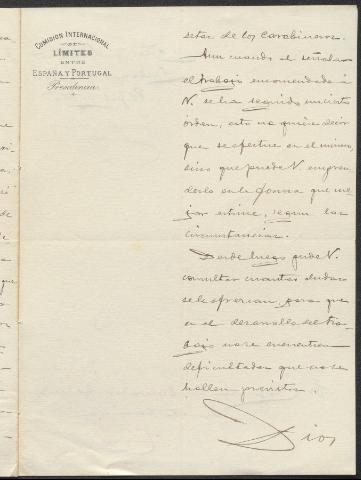 COMISIÓN INTERNACIONAL
DE
LÍMITES
ENTRE
ESPAÑA Y PORTUGAL
Presidencia
setas de los Carabineros.
Aun cuando al señalar
el trabajo encomendado á
V. se ha seguido un cierto
órden, esto no quiere decir
que se efectue en el mismo,
sino que puede V. empren-
derlo en la forma que me-
jor estime, segun las
circunstancias.
Desde luego pide V.
consultar cuantas dudas
se le ofrezcan, para que
en el desarrollo del tra-
bajo no se encuentren
dificultades que no se
hallen previstas.
Dios